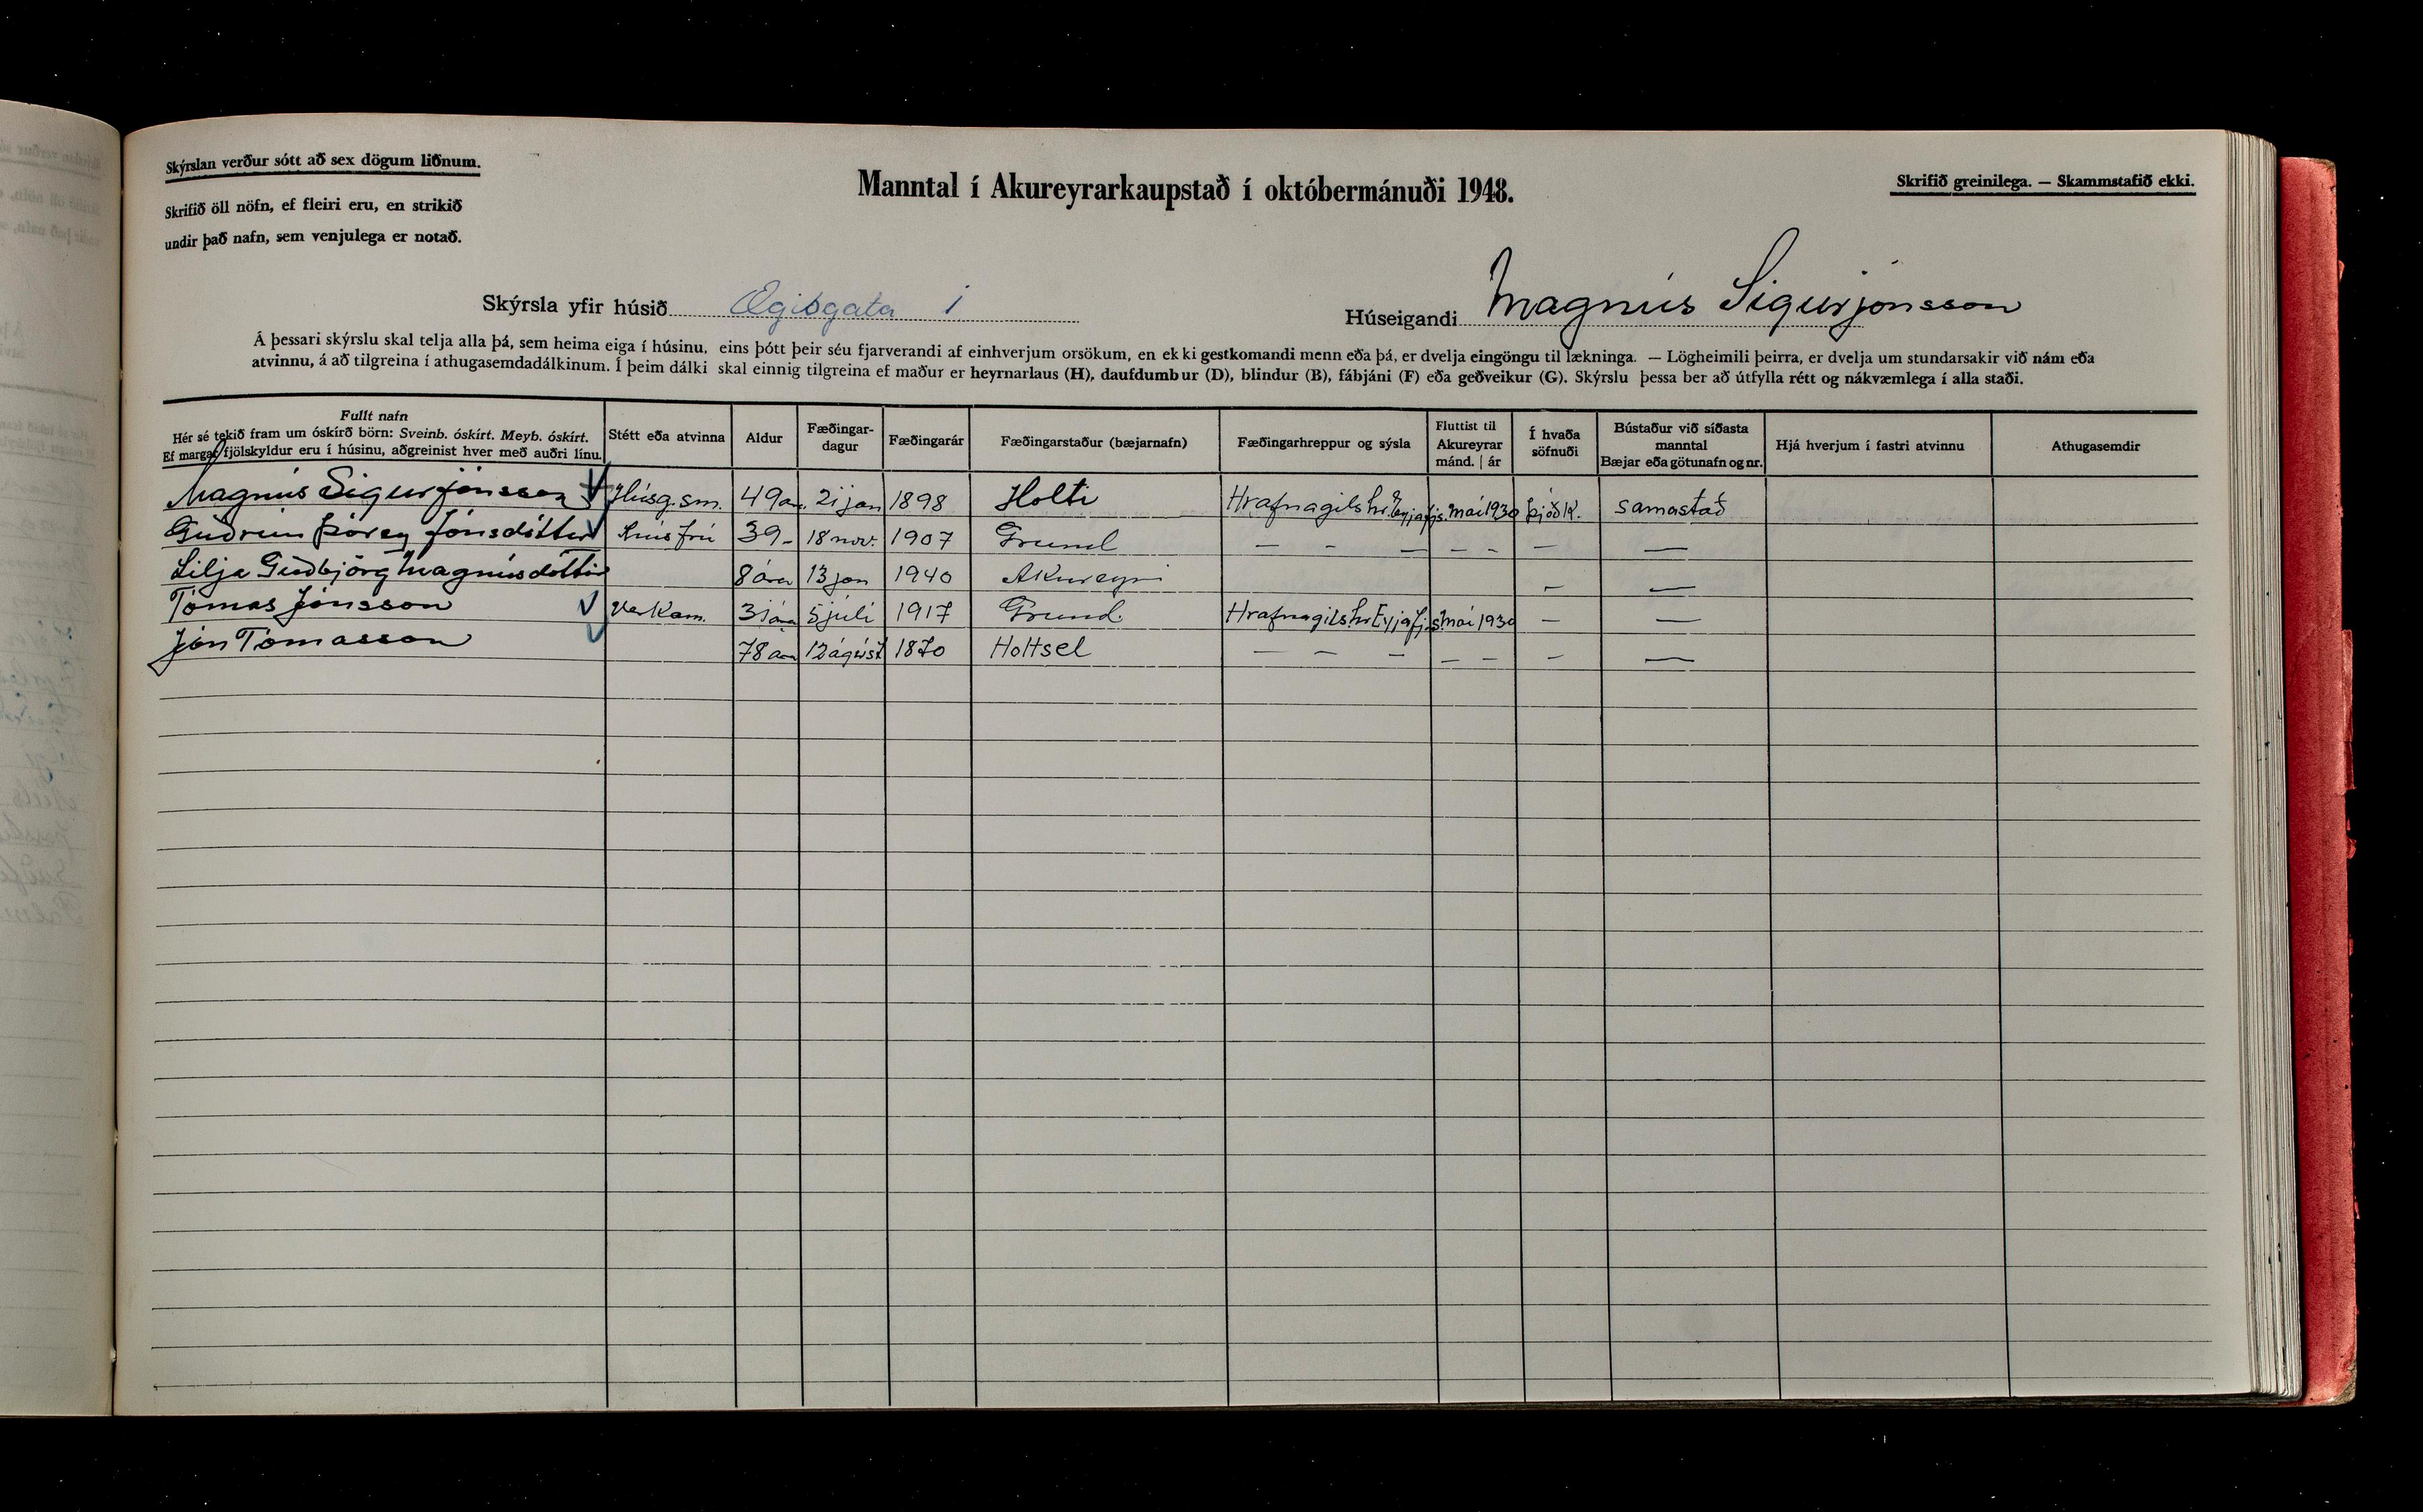 Skýrslan verður sótt að sex dögum liðnum.
Skrifið öll nöfn, ef fleiri eru, en strikið
undir það nafn, sem venjulega er notað.
Manntal í Akureyrarkaupstað í októbermánuði 1948.
Skrifið greinilega. — Skammstafið ekki.
Skýrsla yfir húsið Ægisgata 1
Húseigandi Magnús Sigurjónsson
Á þessari skýrslu skal telja alla þá, sem heima eiga í húsinu, eins þótt þeir séu fjarverandi af einhverjum orsökum, en ekki gestkomandi menn eða þá, er dvelja eingöngu til lækninga. — Lögheimili þeirra, er dvelja um stundarsakir við nám eða
atvinnu, á að tilgreina í athugasemdadálkinum. Í þeim dálki skal einnig tilgreina ef maður er heyrnarlaus (H), daufdumbur (D), blindur (B), fábjáni (F) eða geðveikur (G). Skýrslu þessa ber að útfylla rétt og nákvæmlega í alla staði.
Fullt nafn
Hér sé tekið fram um óskírð börn: Sveinb. óskírt. Meyb. óskírt.
Ef margar fjölskyldur eru í húsinu, aðgreinist hver með auðri línu.
Stétt eða atvinna
Aldur
Fæðingar-
dagur
Fæðingarár
Fæðingarstaður (bæjarnafn)
Fæðingarhreppur og sýsla
Fluttist til
Akureyrar
mánd. | ár
Í hvaða
söfnuði
Bústaður við síðasta
manntal
Bæjar eða götunafn og nr.
Hjá hverjum í fastri atvinnu
Athugasemdir
Magnús Sigurjónsson Húsg.sm. 49 ára 21 jan 1898 Holti Hrafnagilshr. Eyjafjs. mai 1930 þjóðk. samastað
Guðrún Þórey Jónsdóttir húsfrú 39 - 18 nov. 1907 Grund — - — - - — —
Lilja Guðbjörg Magnúsdóttir 8 ára 13 jan 1940 Akureyri — —
Tómas Jónsson Verkam. 31 ára 5 júlí 1917 Grund Hrafnagilshr Eyjafjs mai 1930 — —
Jón Tómasson 78 ára 12 ágúst 1870 Holtsel — - - — — - —